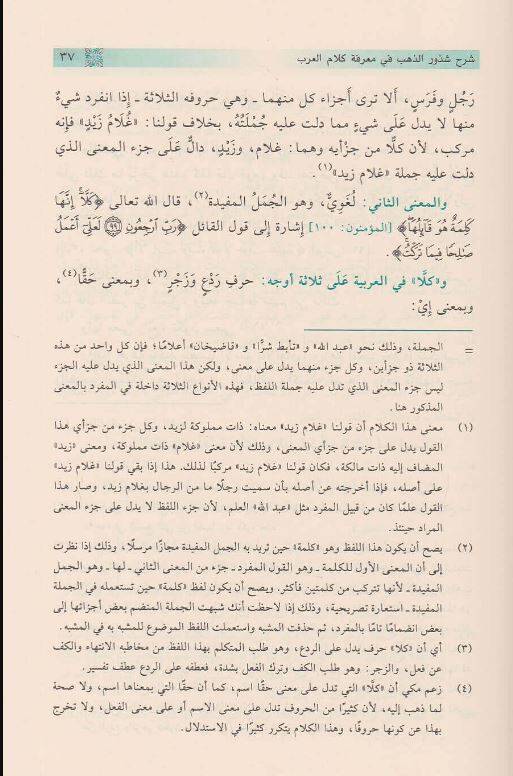 شرح شذور الذهب في معرفة كلام العرب ٣٧
رَجُلٍ وفَرَسٍ، أَلا ترى أجزاء كل منهما ـ وهي حروفه الثلاثة ـ إذا انفرد شيءٌ
منها لا يدل عَلَى شيءٍ مما دلت عليه جُمْلَتُهُ، بخلاف قولنا: «غُلَامُ زَيْدٍ» فإنه
مركب، لأن كلًّا من جزأيه وهما: غلام، وزَيْدٍ، دالٌّ عَلَى جزء المعنى الذي
دلت عليه جملة «غلام زيد»(١).
والمعنى الثاني: لُغَوِيٌّ، وهو الجُمَلُ المفيدة(٢)، قال الله تعالى ﴿كَلَّآ إِنَّهَا
كَلِمَةٌ هُوَ قَآئِلُهَا﴾ [المؤمنون: ١٠٠] إشارة إلى قول القائل ﴿رَبِّ ٱرْجِعُونِ ۝٩٩ لَعَلِّىٓ أَعْمَلُ
صَٰلِحًا فِيمَا تَرَكْتُ﴾.
و«كلَّا» في العربية عَلَى ثلاثة أوجه: حرفِ رَدْعٍ وَزَجْرٍ(٣)، وبمعنى حَقًّا(٤)،
وبمعنى إيْ:
= الجملة، وذلك نحو «عبد الله» و «تأبط شرًّا» و «قاضيخان» أعلامًا؛ فإن كل واحد من هذه
الثلاثة ذو جزأين، وكل جزء منهما يدل على معنى، ولكن هذا المعنى الذي يدل عليه الجزء
ليس جزء المعنى الذي تدل عليه جملة اللفظ، فهذه الأنواع الثلاثة داخلة في المفرد بالمعنى
المذكور هنا.
(١) معنى هذا الكلام أن قولنا «غلام زيد» معناه: ذات مملوكة لزيد، وكل جزء من جزأي هذا
القول يدل على جزء من جزأي المعنى، وذلك لأن معنى «غلام» ذات مملوكة، ومعنى «زيد»
المضاف إليه ذات مالكة، فكان قولنا «غلام زيد» مركبًا لذلك. هذا إذا بقي قولنا «غلام زيد»
على أصله، فإذا أخرجته عن أصله بأن سميت رجلًا ما من الرجال بغلام زيد، وصار هذا
القول علمًا كان من قبيل المفرد مثل «عبد الله» العلم، لأن جزء اللفظ لا يدل على جزء المعنى
المراد حينئذ.
(٢) يصح أن يكون هذا اللفظ وهو «كلمة» حين تريد به الجمل المفيدة مجازًا مرسلًا، وذلك إذا نظرت
إلى أن المعنى الأول للكلمة ـ وهو القول المفرد ـ جزء من المعنى الثاني ـ لها ـ وهو الجمل
المفيدة ـ لأنها تتركب من كلمتين فأكثر. ويصح أن يكون لفظ «كلمة» حين تستعمله في الجملة
المفيدة ـ استعارة تصريحية، وذلك إذا لاحظت أنك شبهت الجملة المنضم بعض أجزائها إلى
بعض انضمامًا تامًا بالمفرد، ثم حذفت المشبه واستعملت اللفظ الموضوع للمشبه به في المشبه.
(٣) أي أن «كلَّا» حرف يدل على الردع، وهو طلب المتكلم بهذا اللفظ من مخاطبه الانتهاء والكف
عن فعل، والزجر: وهو طلب الكف وترك الفعل بشدة، فعطفه على الردع عطف تفسير.
(٤) زعم مكي أن «كلَّا» التي تدل على معنى حقًا اسم، كما أن حقًا التي بمعناها اسم، ولا صحة
لما ذهب إليه، لأن كثيرًا من الحروف تدل على معنى الاسم أو على معنى الفعل، ولا تخرج
بهذا عن كونها حروفًا، وهذا الكلام يتكرر كثيرًا في الاستدلال.